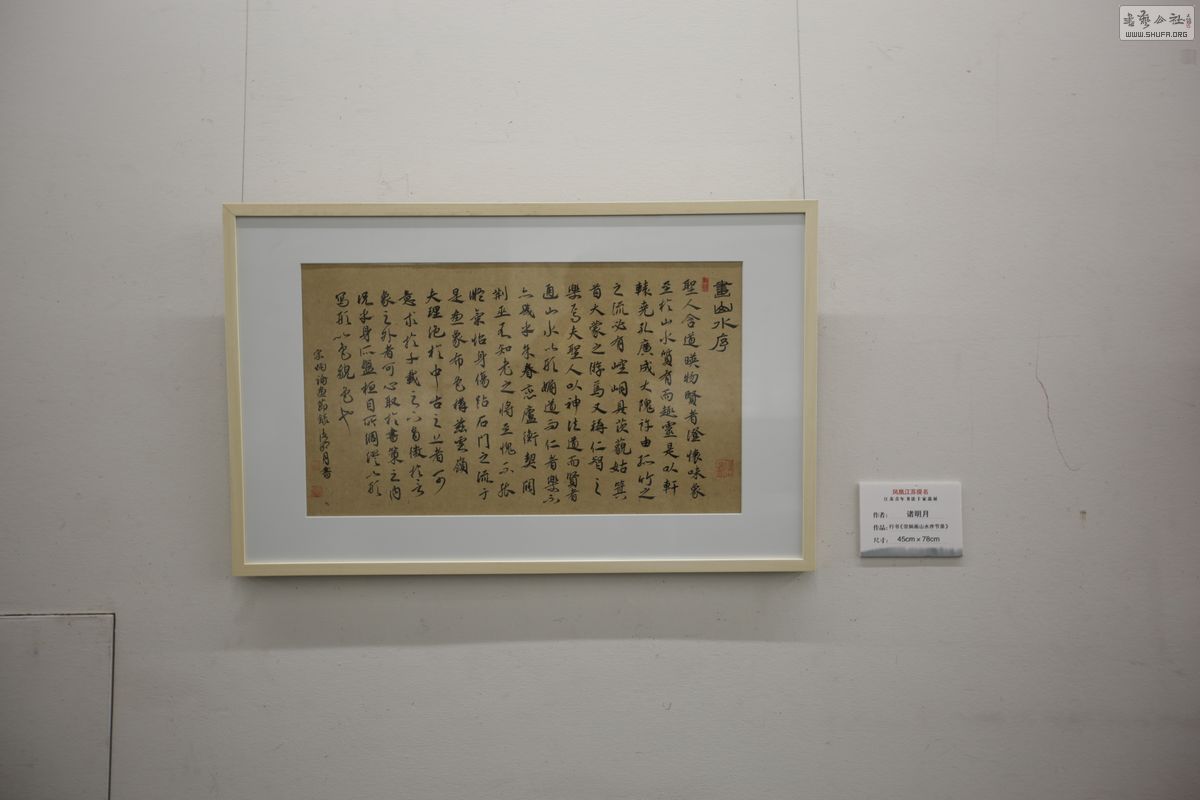 書藝公社
WWW.SHUFA.ORG
畫山水序
聖人含道暎物賢者澄懷味象
至於山水質有而趣靈是以軒
轅堯孔廣成大隗許由孤竹之
之流必有崆峒具茨藐姑箕
首大蒙之遊焉又稱仁智之
樂焉夫聖人以神法道而賢者
通山水以形媚道而仁者樂不
亦幾乎余眷戀廬衡契闊
荊巫不知老之將至愧不能
凝氣怡身傷跕石門之流于
是畫象布色構茲雲嶺
夫理絕於中古之上者可
意求於千載之下旨微於言
象之外者可心取於書策之內
況乎身所盤桓目所綢繆以形
寫形以色貌色也
宗炳論畫節錄 明月書
凤凰江苏提名
江苏青年书法十家巡展
作者： 诸明月
作品：行书《宗炳画山水序节录》
尺寸： 45cm x 78cm